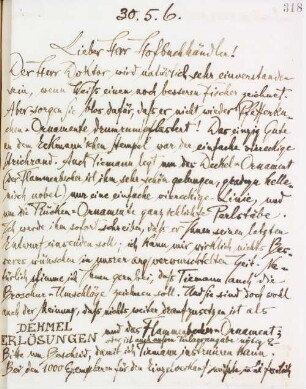 318
30.5.6.
Lieber Herr Hofbuchhändler!
Der Herr Doktor wird natürlich sehr einverstanden
sein, wenn Weiß einen noch besseren Fischer zeichnet.
Aber sorgen Sie dafür, daß er nicht wieder Pfefferku-
chen-Ornamente drumrum! Das einzig Gute
an dem Eckmann'schen Stempel war der einfache viereckige
Strichrand. Auch Tiemann legt um das Deckel-Ornament
(das ist ihm sehr schön gelungen,
nobel) nur eine einfache viereckige Linie, und
um die Rücken-Ornamente ganz schlichte Perlstäbe.
Ich werde ihm sofort schreiben, daß er Ihnen seinen letzten
Entwurf einsenden soll; ich kann mir wirklich nichts Bes-
seres wünschen in unserer Zeit. Na-
türlich stimme ich Ihnen bei, daß Tiemann auch die
Broschur-Umschläge zeichnen soll. Und Sie sind doch wohl
auch der Meinung, daß nichts weiter drauf zu setzen ist als
DEHMEL
ERLÖSUNGEN
und das Ornament;
oder ist auch nötig?
Bitte um Bescheid, damit ich Tiemann instruieren kann.
Bei den 1000 Exemplaren für den Einzelverkauf